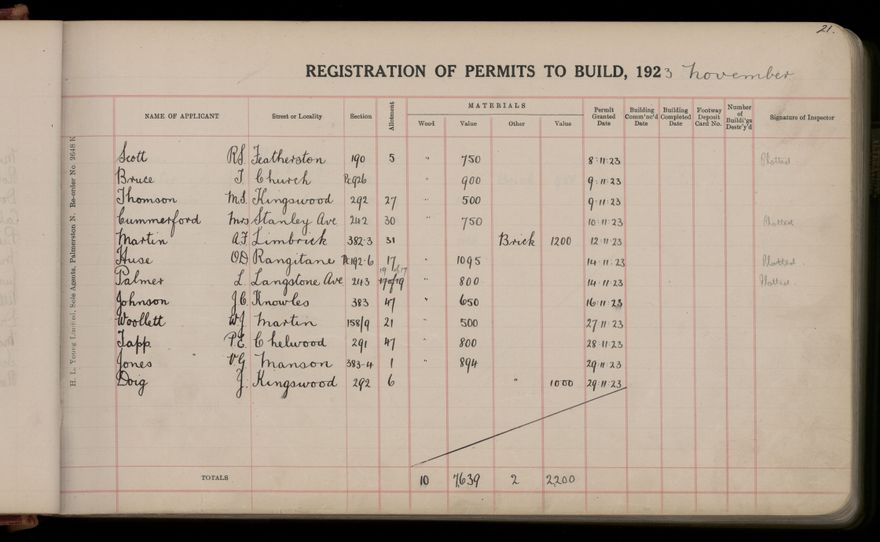 21.
REGISTRATION OF PERMITS TO BUILD, 1923 November
NAME OF APPLICANT Street or Locality Section Allotment MATERIALS Wood Value Other Value Permit Granted Date Building Comm'nc'd Date Building Completed Date Footway Deposit Card No. Number of Buildi'gs Destr'y'd Signature of Inspector
Scott R.S. Featherston 190 5 " 750 8·11·23 Plotted
Bruce J. Church 926 " 900 9·11·23
Thomson M.S. Kingswood 292 27 " 500 9·11·23
Cummerford Mrs Stanley Ave 242 30 " 750 10·11·23 Plotted
Martin A.F. Limbrick 382·3 31 Brick 1200 12·11·23
Huse O.D. Rangitane 192·6 17 " 1095 14·11·23 Plotted
Palmer L. Langstone Ave 243 " 800 14·11·23 Plotted
Johnson J.C. Knowles 383 47 " 650 16·11·23
Woollett W.J. Martin 158/9 21 " 500 27·11·23
Tapp P.E. Chelwood 291 47 " 800 28·11·23
Jones V.G. Manson 383·4 1 " 894 29·11·23
Doig J. Kingswood 292 6 " 1000 29·11·23
TOTALS 10 7,639 2 2,200
H. L. Young Limited, Sole Agents, Palmerston N. Re-order No. 2648K